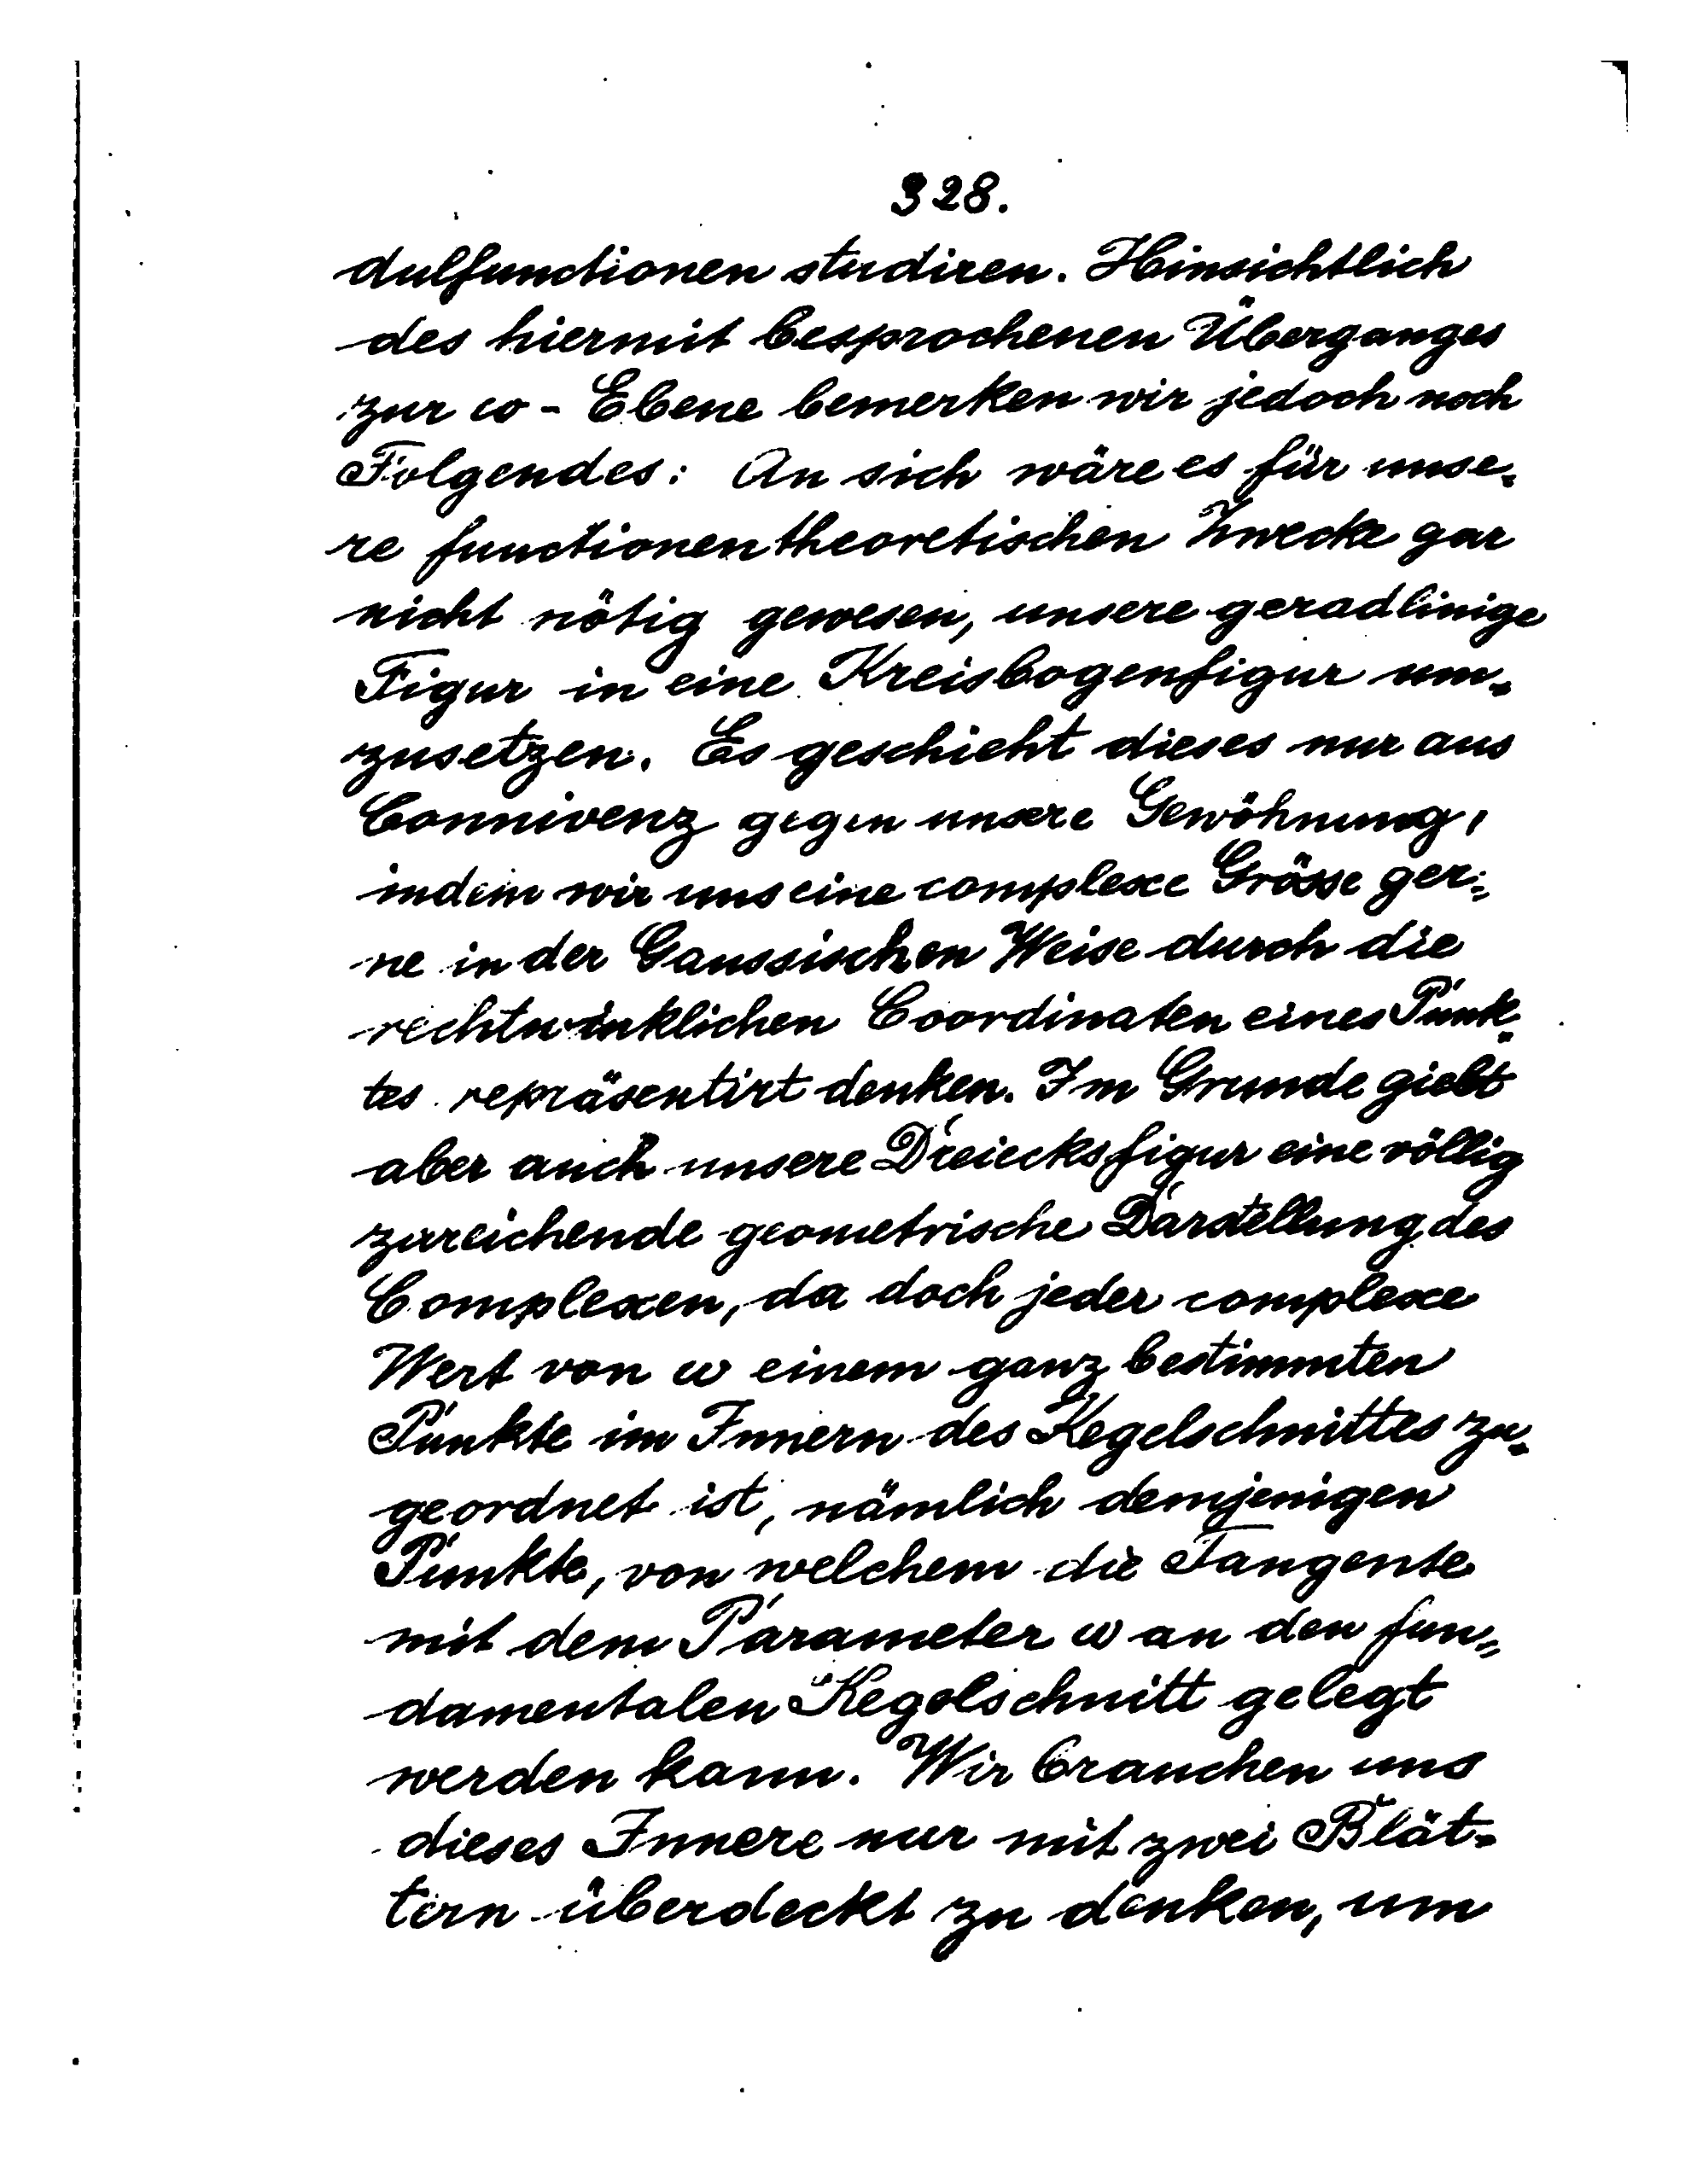 328.
dulfunctionen studiren. Hinsichtlich
des hiermit besprochenen Überganges
zur ω - Ebene bemerken wir jedoch noch
Folgendes: An sich wäre es für unse-
re functionentheoretischen Zwecke gar
nicht nötig gewesen, unsere geradlinige
Figur in eine Kreisbogenfigur um-
zusetzen. Es geschieht dieses nur aus
Connivenz gegen unsere Gewöhnung,
indem wir uns eine complexe Grösse ger-
ne in der Gaussischen Weise durch die
rechtwinklichen Coordinaten eines Punk-
tes repräsentirt denken. Im Grunde giebt
aber auch unsere Dreiecksfigur eine völlig
zureichende geometrische Darstellung des
Complexen, da doch jeder complexe
Wert von ω einem ganz bestimmten
Punkte im Innern des Kegelschnittes zu-
geordnet ist, nämlich demjenigen
Punkte, von welchem die Tangente
mit dem Parameter ω an den fun-
damentalen Kegelschnitt gelegt
werden kann. Wir brauchen uns
dieses Innere nur mit zwei Blät-
tern überdeckt zu denken, um